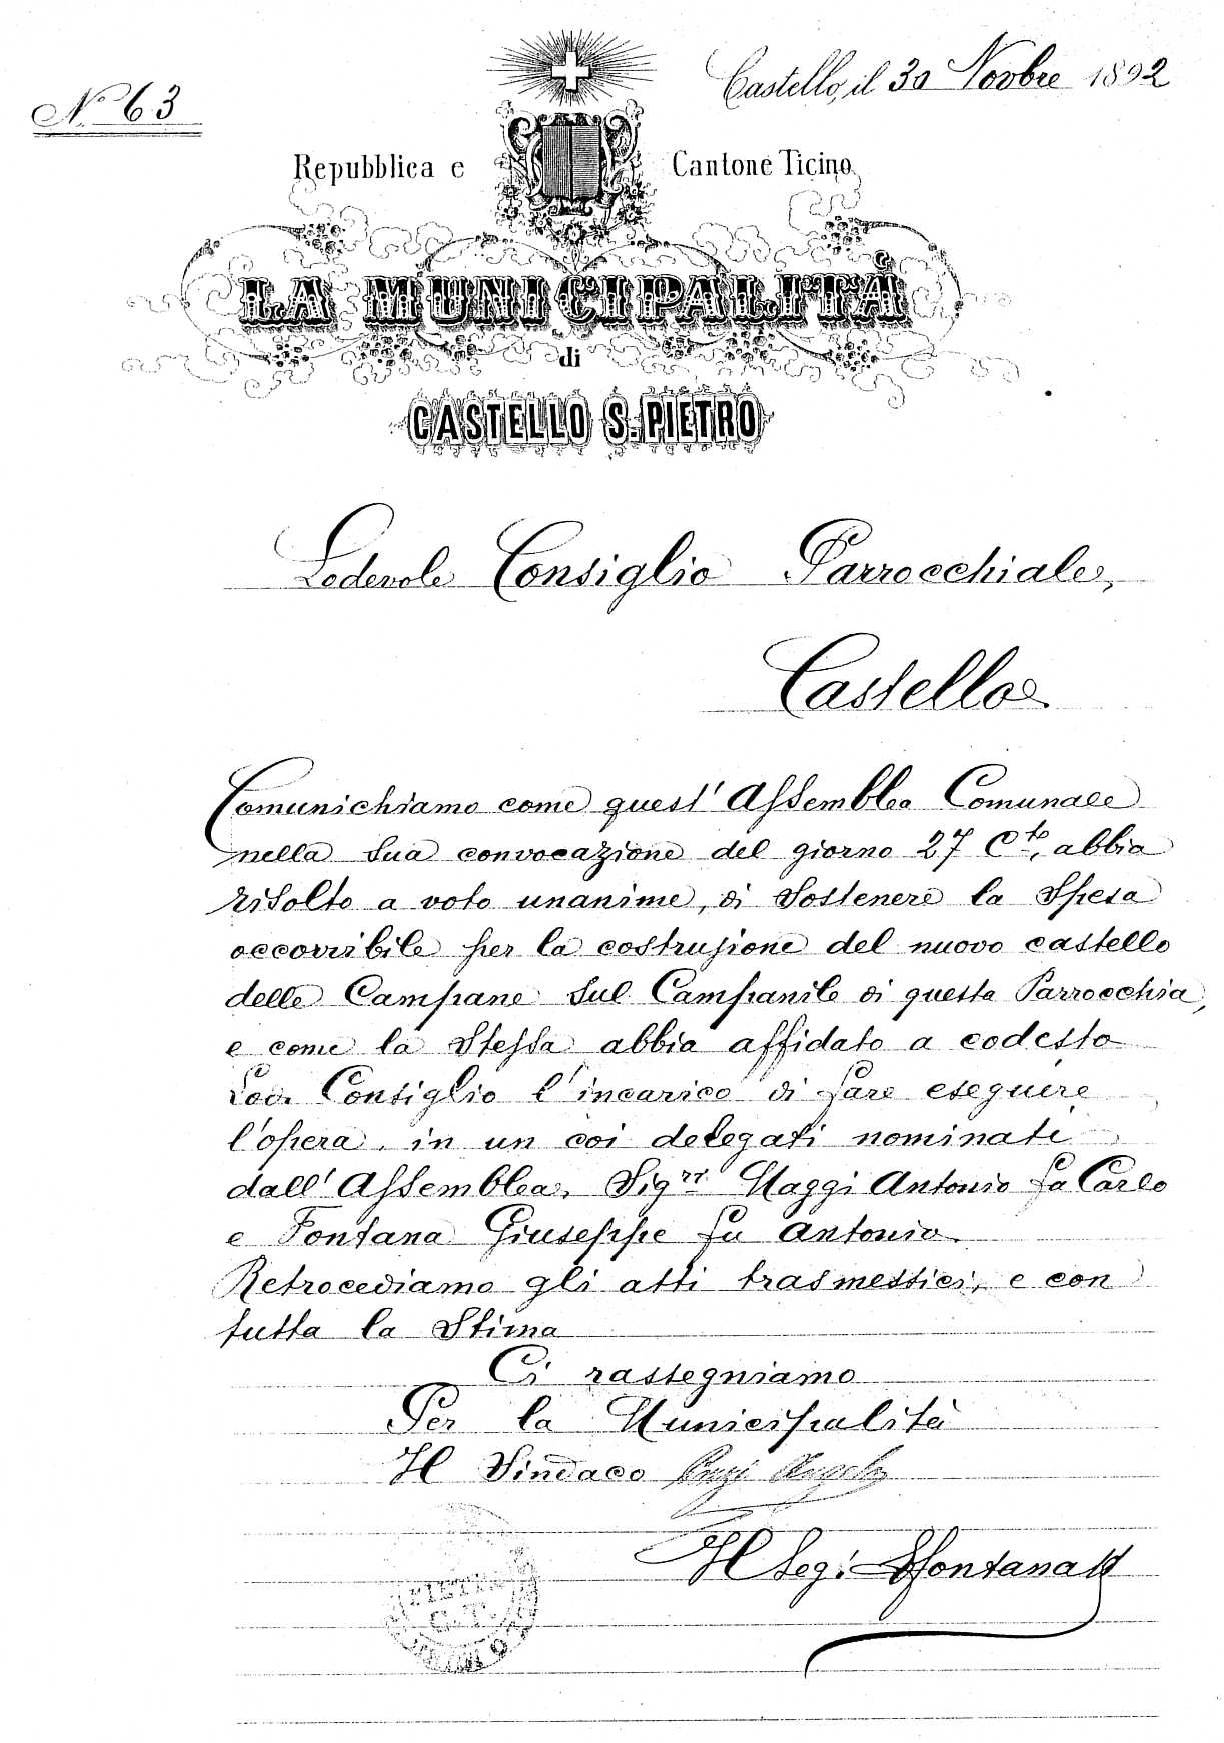 Nº 63
Castello, il 30 Novbre 1892
Repubblica e Cantone Ticino
LA MUNICIPALITÁ
di
CASTELLO S. PIETRO
Lodevole Consiglio Parrocchiale,
Castello
Comunichiamo come quest' Assemblea Comunale
nella sua convocazione del giorno 27 C.to, abbia
risolto a voto unanime, di sostenere la spesa
occorribile per la costruzione del nuovo castello
delle Campane sul Campanile di questa Parrocchia,
e come la stessa abbia affidato a codesto
Lod. Consiglio l'incarico di fare eseguire
l'opera, in un coi delegati nominati
dall' Assemblea, Sigri Maggi Antonio fu Carlo
e Fontana Giuseppe fu Antonio.
Retrocediamo gli atti trasmettici, e con
tutta la stima
Ci rassegniamo
Per la Municipalità
Il Sindaco Angelo
Il Seg: Fontana
PIETRO
C. T.